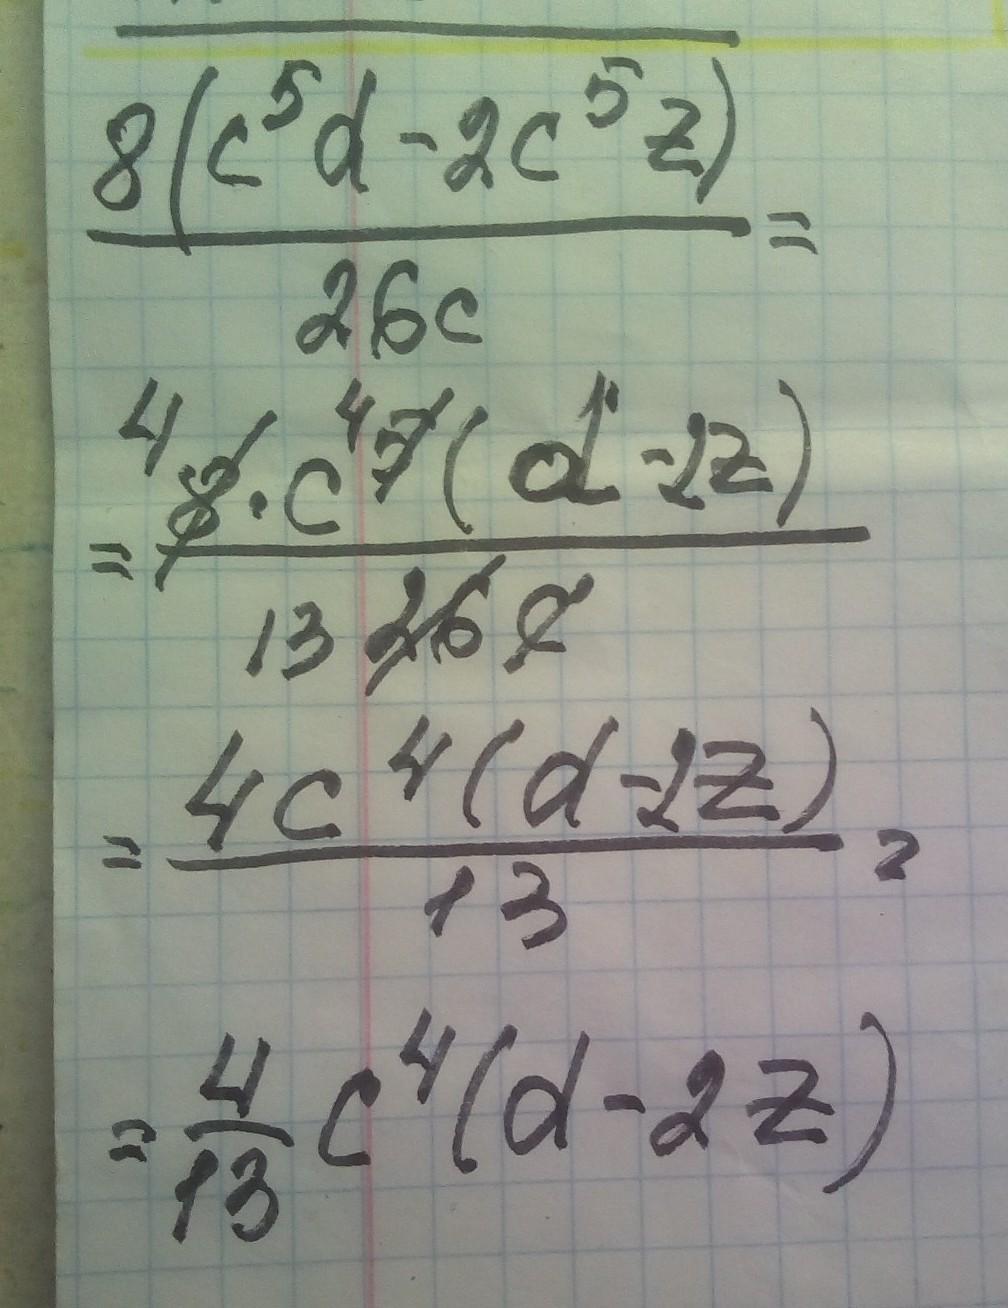 8(c⁵d-2c⁵z)
26c
=
4 8·c⁴ 5(d-2z)
=
13 26 c
4c⁴(d-2z)
=
13
=
= 4/13 c⁴(d-2z)